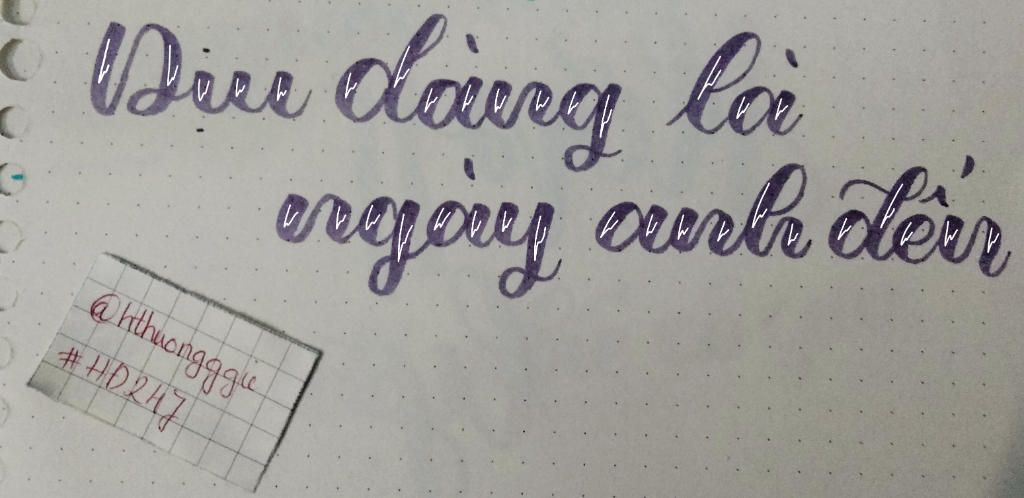 Dịu dàng là
ngày anh đến
@hthuongggie
#HD247